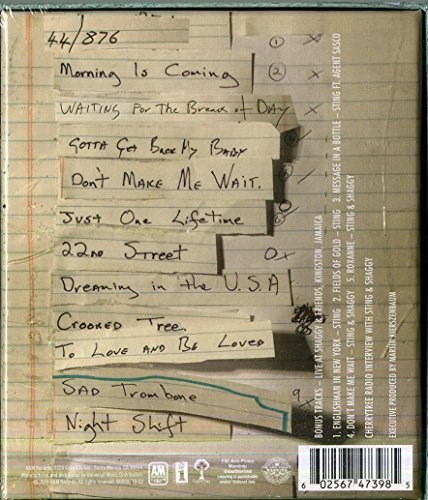 44/876
①
Morning Is Coming ②
WAITING For The Break of DAY
GOTTA Get Back My BABY
Don't MAKE Me WAIT.
Just One Lifetime
22ND Street
Dreaming in the U.S.A
CROOKED Tree
To Love AND Be Loved
SAD Trombone 9
Night Shift
BONUS TRACKS – LIVE AT SHAGGY & FRIENDS, KINGSTON, JAMAICA
1. ENGLISHMAN IN NEW YORK – STING 2. FIELDS OF GOLD – STING 3. MESSAGE IN A BOTTLE – STING FT. AGENT SASCO
4. DON'T MAKE ME WAIT – STING & SHAGGY 5. ROXANNE – STING & SHAGGY
CHERRYTREE RADIO INTERVIEW WITH STING & SHAGGY
EXECUTIVE PRODUCED BY MARTIN KIERSZENBAUM
A&M
FBI Anti-Piracy
Warning:
6 02567 47398 5